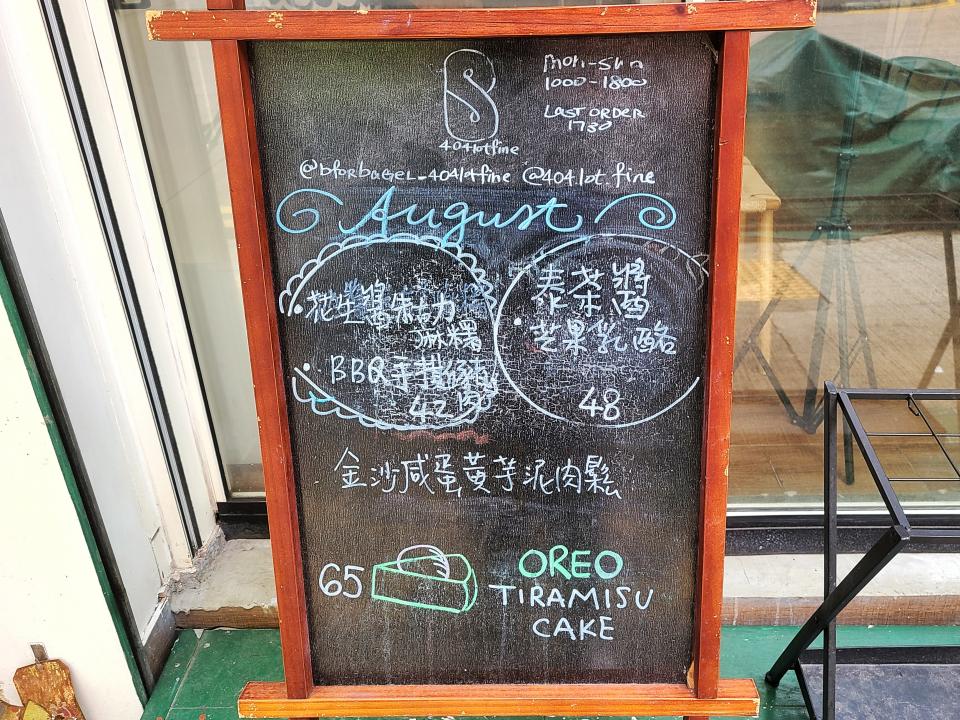 404lotfine
mon-sun
1000-1800
LAST ORDER
1730
@bforbagel_404lotfine @404.lot.fine
August
• 花生醬朱古力
麻糬
• BBQ手撕豬肉
42
焙茶醬
• 芒果乳酪
48
金沙咸蛋黃芋泥肉鬆
65
OREO
TIRAMISU
CAKE